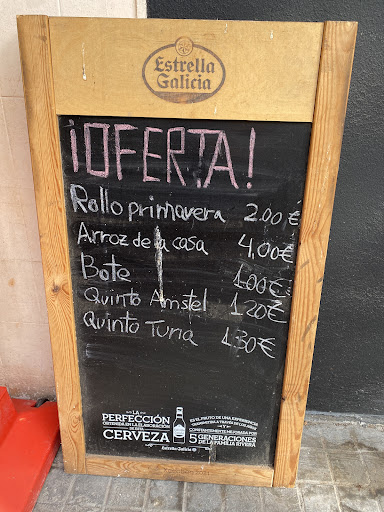 Estrella
Galicia
¡OFERTA!
Rollo primavera 2.00 €
Arroz de la casa 4,00€
Bote 1.00€
Quinto Amstel 1.20€
Quinto Turia 1.30€
LA
PERFECCIÓN
OBTENIDA EN LA ELABORACIÓN
DE ESTA
CERVEZA
ES EL FRUTO DE UNA EXPERIENCIA
TRANSMITIDA A TRAVÉS DE LOS AÑOS
Y
CONSTANTEMENTE MEJORADA POR
5 GENERACIONES
DE LA FAMILIA RIVERA
Estrella Galicia